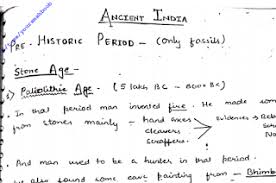 ANCIENT INDIA
PRE. HISTORIC PERIOD - (only fossils)
Stone Age -
Paliolithic Age. (5 lakh BC - 8000 BC)
In that period man invented fire. He made som
from stones mainly - hand axes
cleavers
scraffers.
Evidences → Reb
And man used to be a hunter in that period.
also found some cave painting from - Bhim